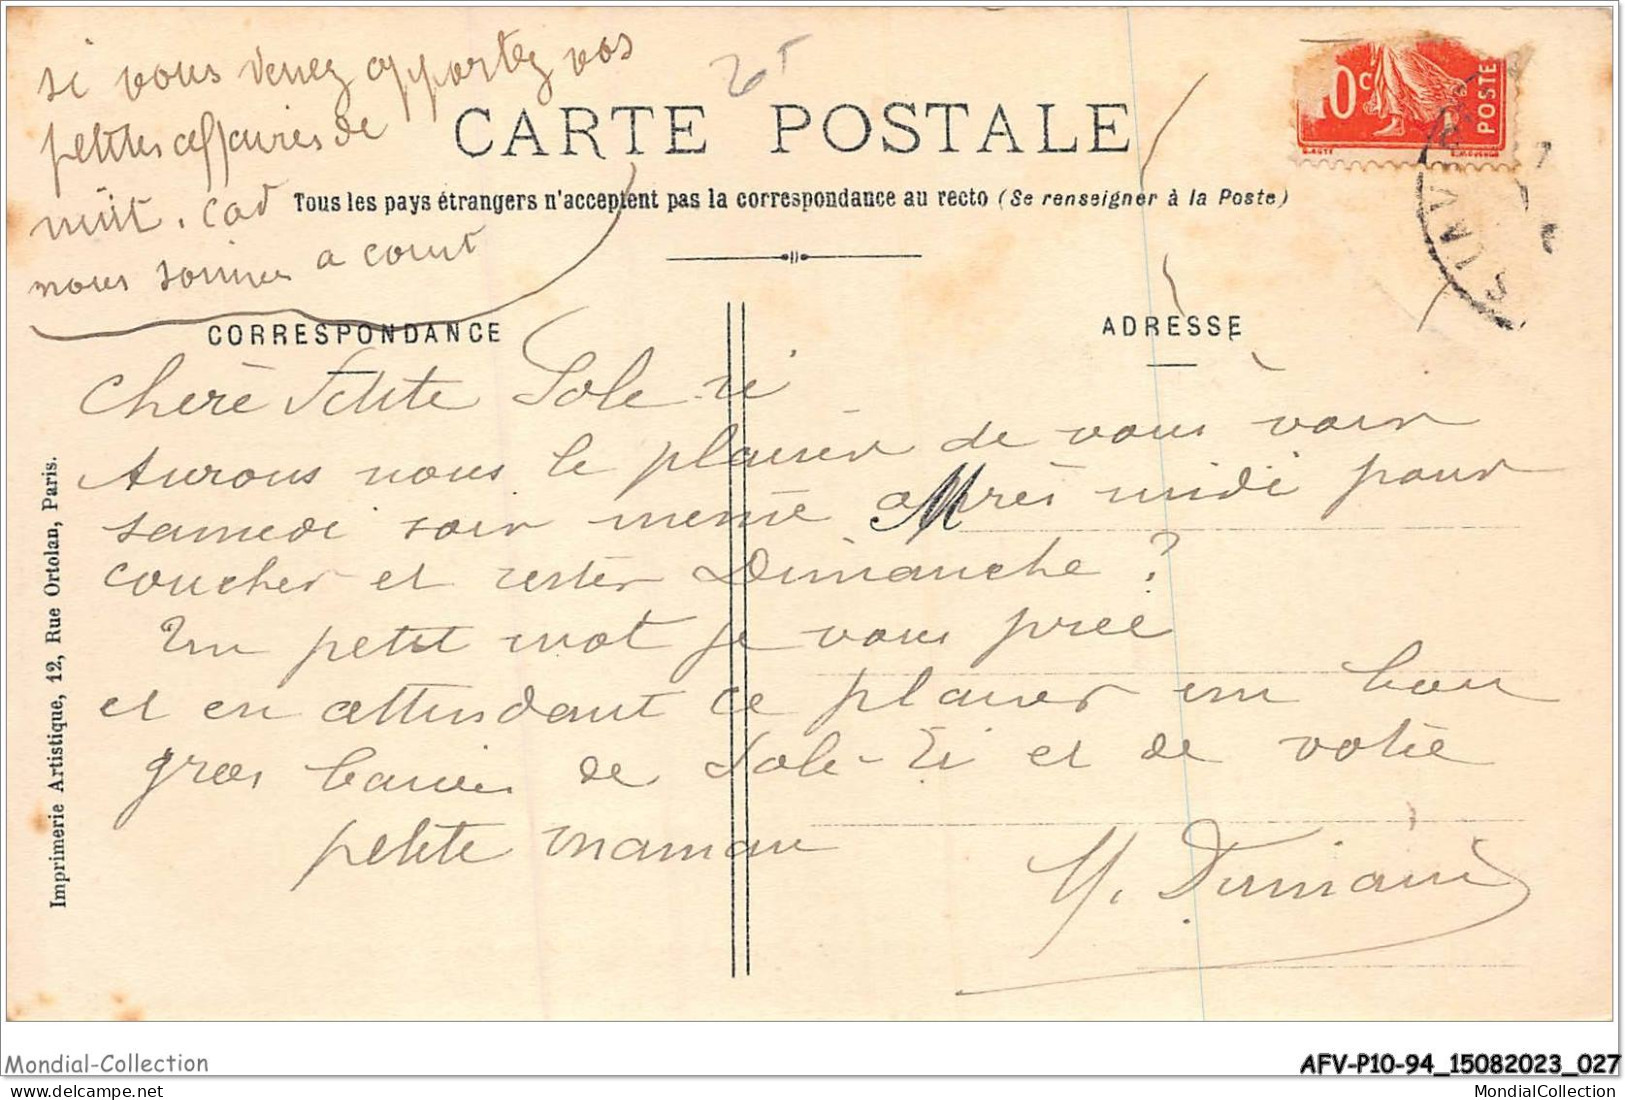 si vous venez apportez vos
petites affaires de
nuit. car
nous sommes a court
CARTE POSTALE
Tous les pays étrangers n'acceptent pas la correspondance au recto (Se renseigner à la Poste)
10c
POSTES
CORRESPONDANCE
ADRESSE
Imprimerie Artistique, 12, Rue Ortolan, Paris.
Chère Petite Sole-ri
Aurons nous le plaisir de vous voir
samedi soir même après midi pour
coucher et rester Dimanche ?
Un petit mot je vous prie
et en attendant ce plaisir un bon
gros baiser de Sole-ri et de votre
petite maman
Mondial-Collection
AFV-P10-94_15082023_027
MondialCollection